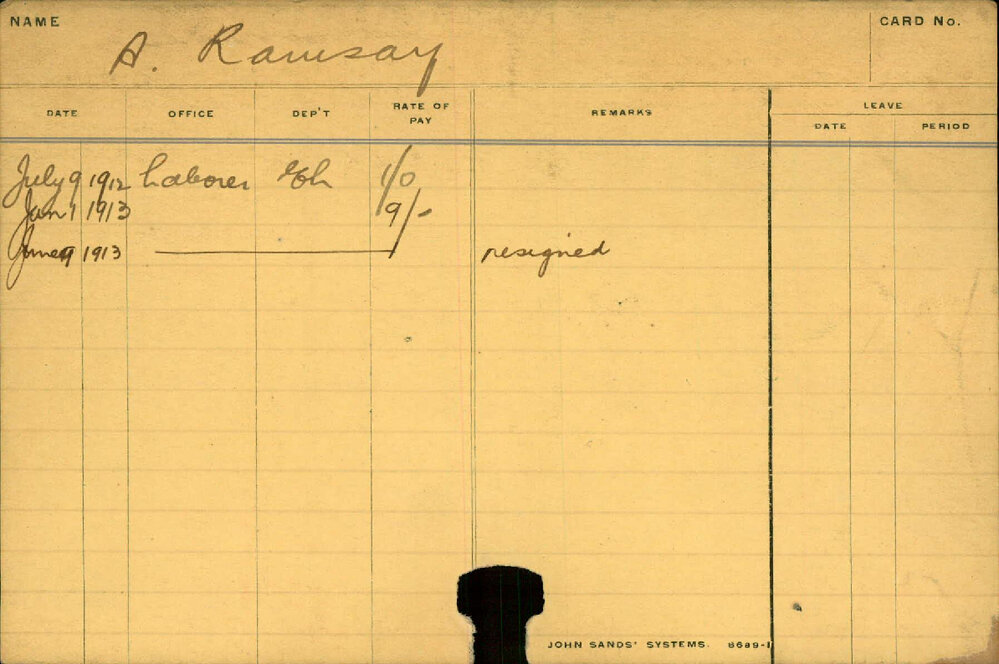 NAME
A. Ramsay
CARD No.
DATE OFFICE DEP'T RATE OF PAY REMARKS LEAVE
DATE PERIOD
July 9 1912 Laborer
Jan 1 1913 9/-
June 9 1913 resigned
JOHN SANDS' SYSTEMS. 8689-1